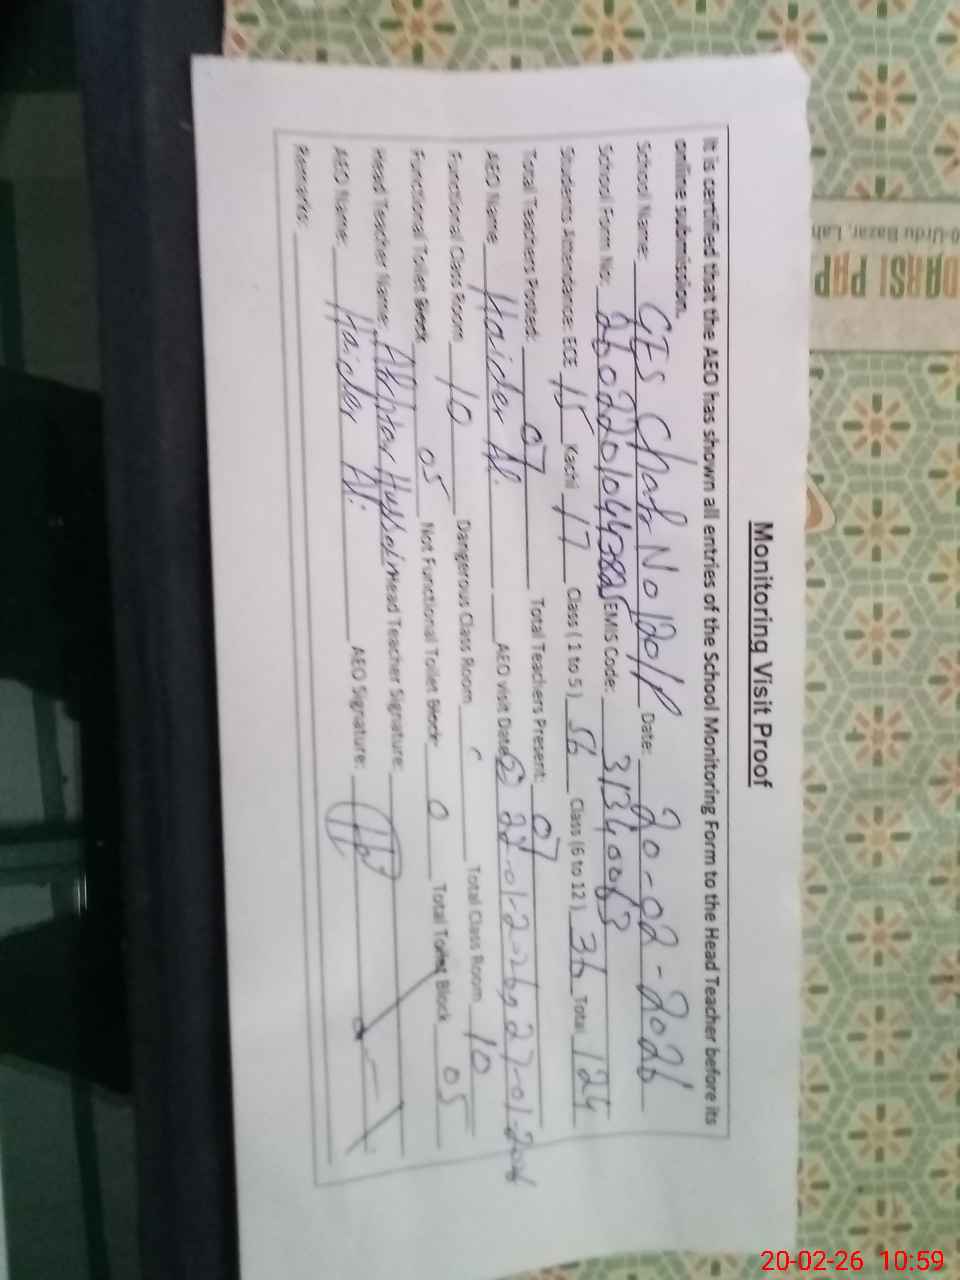 Monitoring Visit Proof
It is certified that the AEO has shown all entries of the School Monitoring Form to the Head Teacher before its
online submission.
School Name: GES Chak No 120/P Date: 20-02-2026
School Form No: EMIS Code: 313400
Students Attendance: ECE 15 Kachi 17 Class ( 1 to 5 ) 56 Class (6 to 12 ) 36 Total 124
Total Teachers Posted: 07 Total Teachers Present: 07
AEO Name Haider Ali AEO visit Dates 27-01-2026
Functional Class Room 10 Dangerous Class Room Total Class Room 10
Functional Toilet Block 05 Not Functional Toilet Block 0 Total Toilet Block 05
Head Teacher Name: Akhtar Hussain Head Teacher Signature:
AEO Name: Haider Ali AEO Signature:
Remarks:
o-Urdu Bazar, Lah
DARSI PAP
20-02-26 10:59